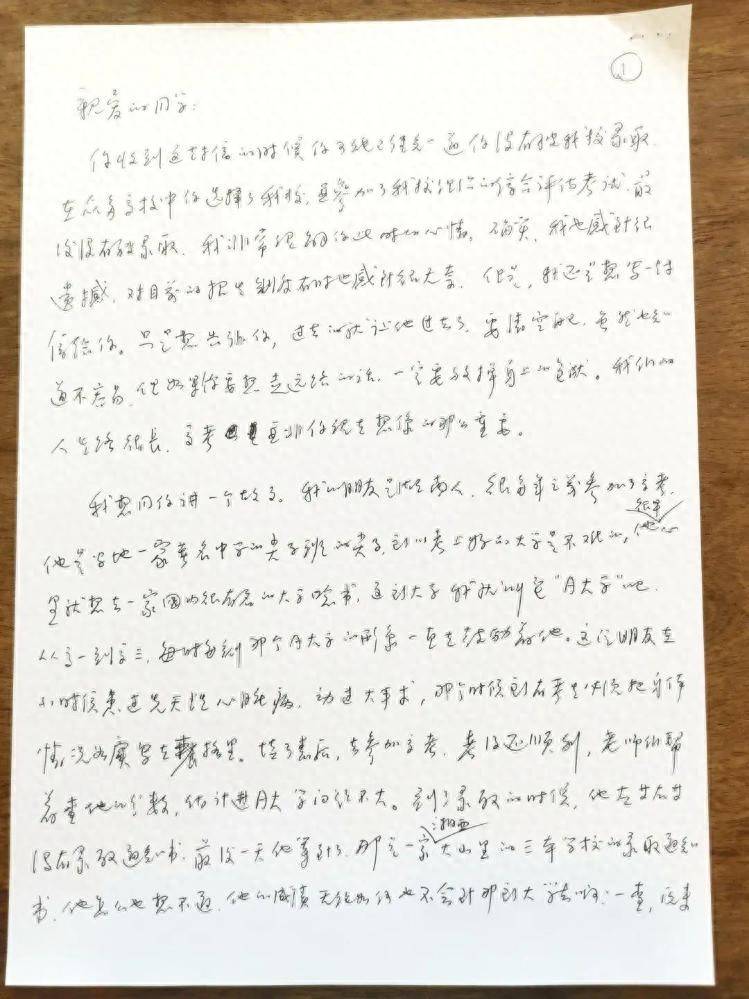 1
亲爱的同学:
你收到这封信的时候你可能已经知道你没有被我校录取.
在众多高校中你选择了我校,且参加了我校组织的综合评估考试,最
后没有被录取.我非常理解你此时的心情,确实,我也感到很
遗憾,对目前的招生制度有时也感到很无奈.但是,我还是想写一封
信给你。只是想告诉你,过去的就让他过去了,要清空自己.虽然也知
道不容易,但如果你要想走远路的话,一定要放掉身上的包袱。我们的
人生路很長,高考并非你现在想像的那么重要。
我想同你讲一个故事。我的朋友是湖南人,很多年之前参加了高考,
他是当地一家著名中学的尖子班的尖子,所以考上好的大学是不难的,他心
很早
里就想去一家國内很有名的大学唸书,這所大学我就叫它"A大学"吧.
从高一到高三,每时每刻那个A大学的形象一直在鼓励着他。这位朋友在
小时候患过先天性心脏病,动过大手术,那个时候所有考生必须把身体
情况如實写在表格里。填了表后,去参加高考,考得还顺利,老师们帮
着查他的分数,估计进A大学问题不大。到了录取的时候,他左等右等
没有录取通知书,最後一天他等到了,那是一家大山里的三本学校的录取通知
湘西
书,他怎么也想不通,他的成绩无论如何也不会到那所大学去啊;一查,原来